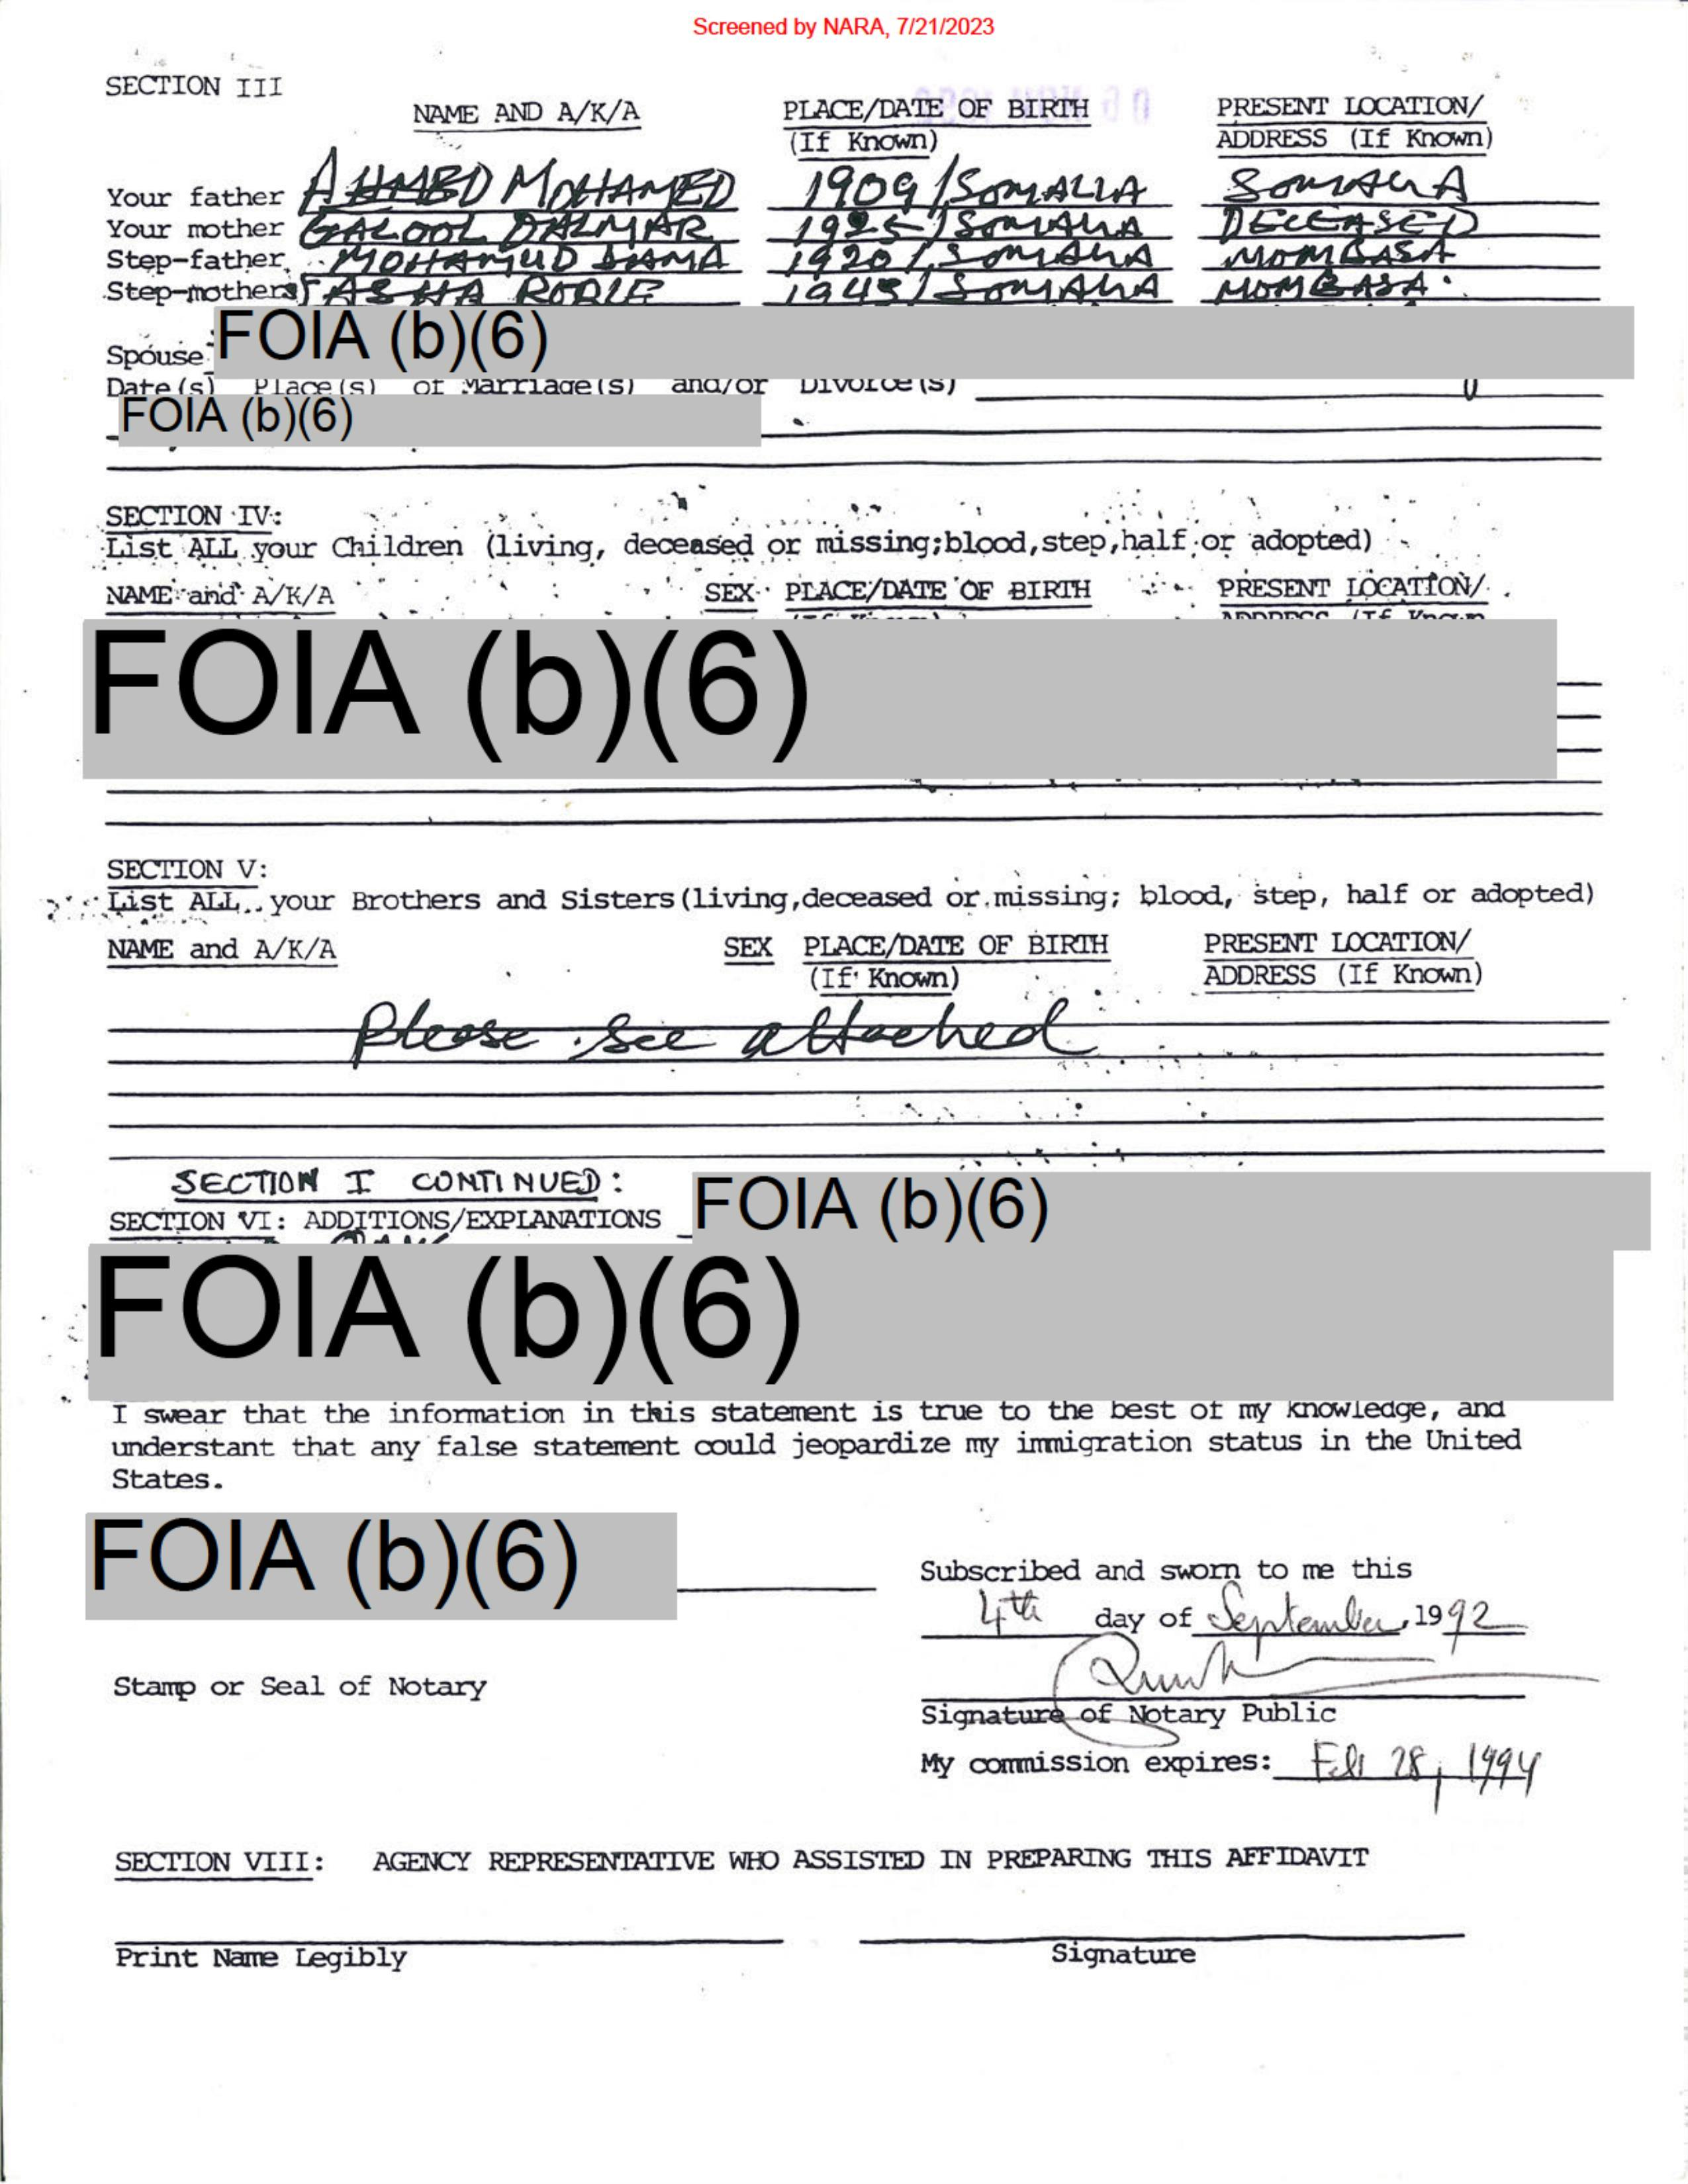 Screened by NARA, 7/21/2023
SECTION III
NAME AND A/K/A PLACE/DATE OF BIRTH PRESENT LOCATION/
(If Known) ADDRESS (If Known)
Your father AHMED MOHAMED 1909/SOMALIA SOMALIA
Your mother GALOOL DALMAR 1925/SOMALIA DECEASED
Step-father MOHAMUD JAMA 1920/SOMALIA MOMBASA
Step-mothers ASHA ROBLE 1945/SOMALIA MOMBASA.
Spouse FOIA (b)(6)
Date(s) Place(s) of Marriage(s) and/or Divorce(s)
FOIA (b)(6)
SECTION IV:
List ALL your Children (living, deceased or missing;blood,step,half or adopted)
NAME and A/K/A SEX PLACE/DATE OF BIRTH PRESENT LOCATION/
ADDRESS (If Known
FOIA (b)(6)
SECTION V:
List ALL your Brothers and Sisters(living,deceased or missing; blood, step, half or adopted)
NAME and A/K/A SEX PLACE/DATE OF BIRTH PRESENT LOCATION/
(If Known) ADDRESS (If Known)
Please see attached
SECTION I CONTINUED:
SECTION VI: ADDITIONS/EXPLANATIONS FOIA (b)(6)
FOIA (b)(6)
I swear that the information in this statement is true to the best of my knowledge, and
understant that any false statement could jeopardize my immigration status in the United
States.
FOIA (b)(6)
Subscribed and sworn to me this
4th day of September, 1992
Stamp or Seal of Notary
Signature of Notary Public
My commission expires: Feb 28, 1994
SECTION VIII: AGENCY REPRESENTATIVE WHO ASSISTED IN PREPARING THIS AFFIDAVIT
Print Name Legibly Signature